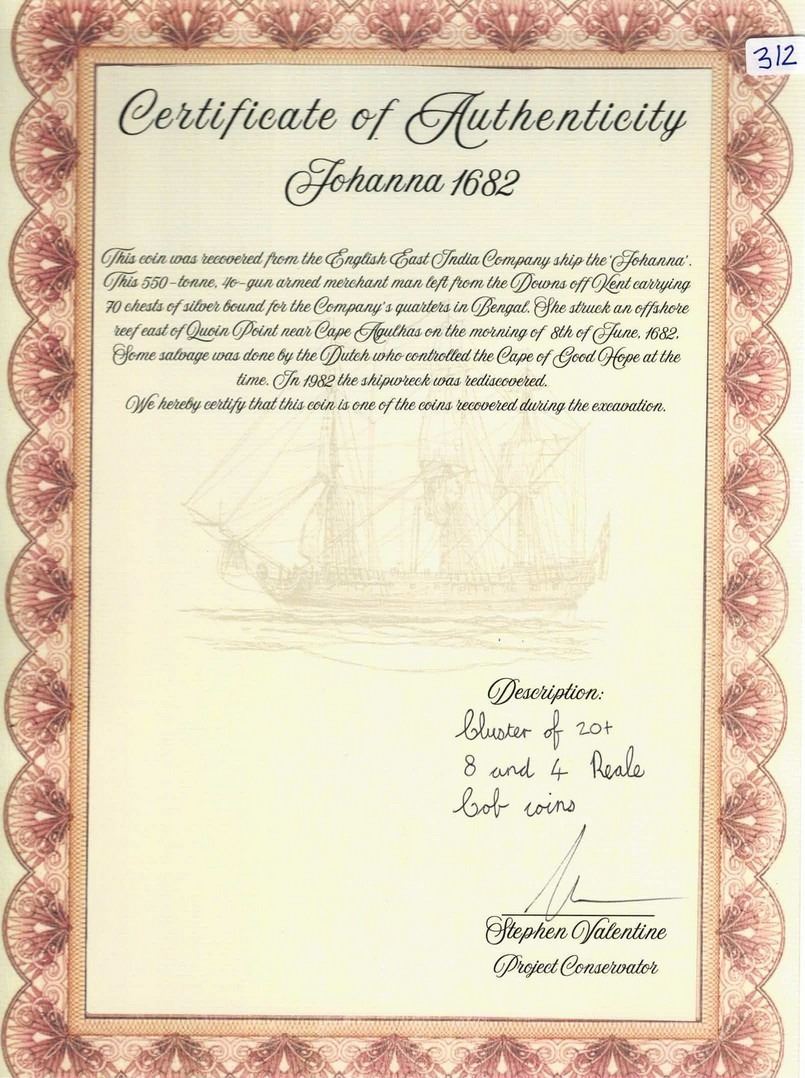 312
Certificate of Authenticity
Johanna 1682
This coin was recovered from the English East India Company ship the 'Johanna'.
This 550-tonne, 40-gun armed merchant man left from the Downs off Kent carrying
70 chests of silver bound for the Company's quarters in Bengal. She struck an offshore
reef east of Quoin Point near Cape Agulhas on the morning of 8th of June, 1682.
Some salvage was done by the Dutch who controlled the Cape of Good Hope at the
time. In 1982 the shipwreck was rediscovered.
We hereby certify that this coin is one of the coins recovered during the excavation.
Description:
Cluster of 20+
8 and 4 Reale
Cob coins
Stephen Valentine
Project Conservator